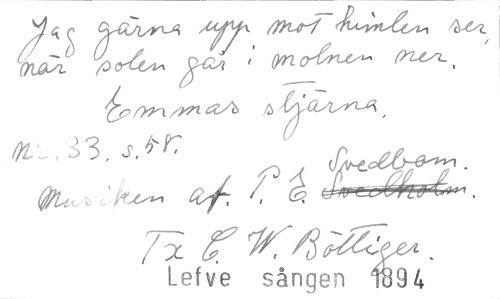 Jag gärna upp mot himlen ser,
när solen går i molnen ner.
Emmas stjärna.
nr. 33. s. 58.
Svedbom.
Musiken af. P. E. Svedholm.
Tx C. W. Böttiger.
Lefve sången 1894